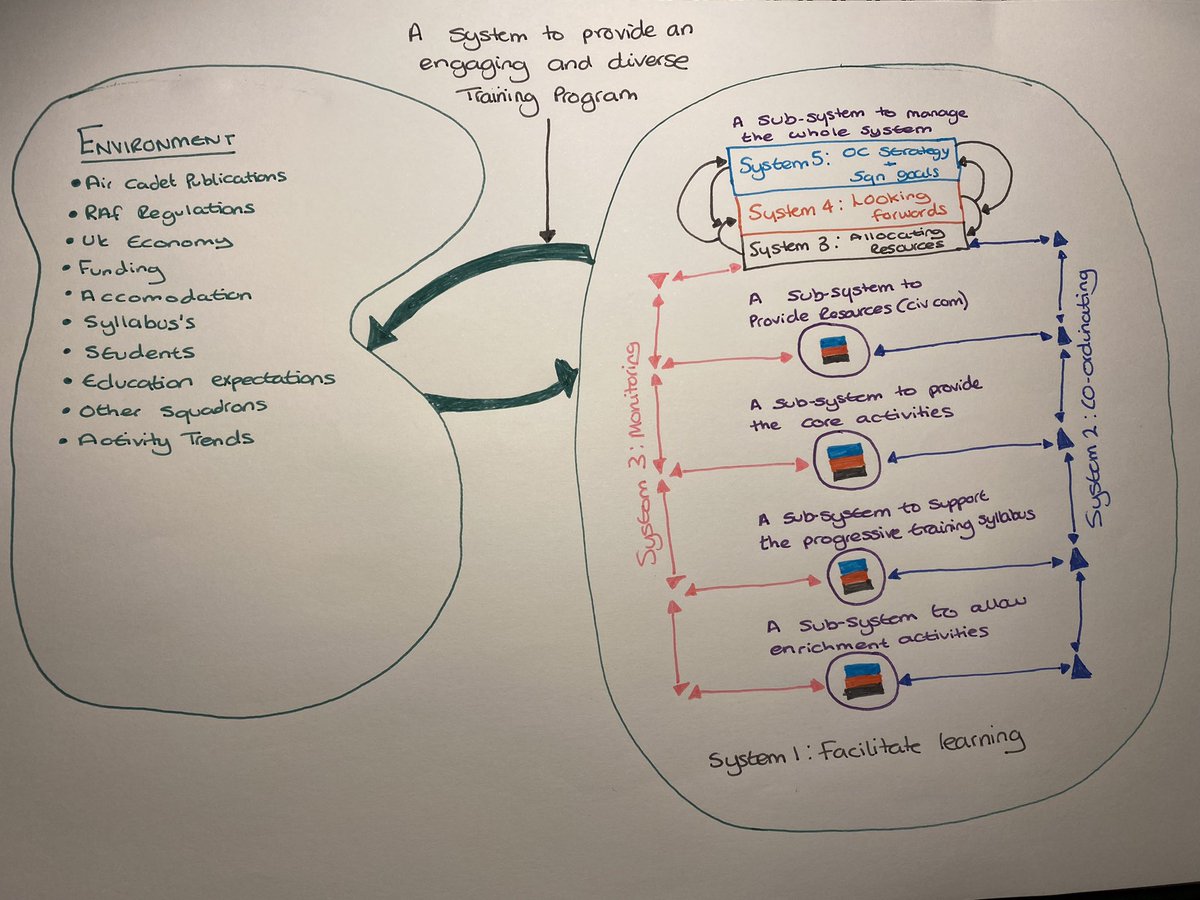 A system to provide an
engaging and diverse
Training Program
ENVIRONMENT
• Air Cadet Publications
• RAF Regulations
• UK Economy
• Funding
• Accomodation
• Syllabus's
• Students
• Education expectations
• Other Squadrons
• Activity Trends
A sub-system to manage
the whole system
System 5: OC Strategy
+
Sqn goals
System 4: Looking
forwards
System 3: Allocating
Resources
A sub-system to
Provide Resources (civcom)
A sub-system to provide
the core activities
A sub-system to support
the progressive training syllabus
A sub-system to allow
enrichment activities
System 3: Monitoring
System 2: Co-ordinating
System 1: Facilitate learning